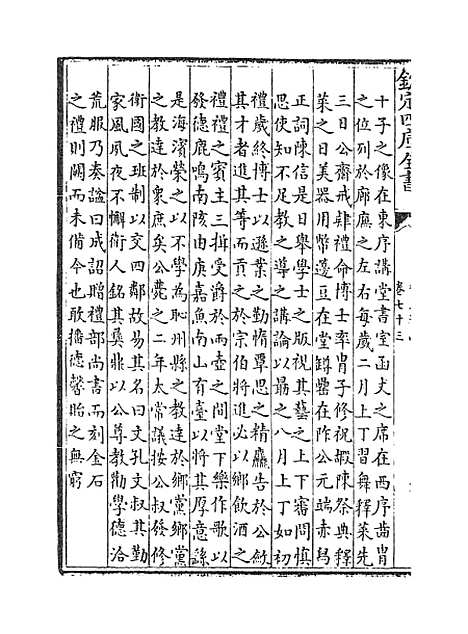 欽定四庫全書
卷七十三
十子之像在東序講堂書室函丈之席在西序齒胄
之位列於廊廡之左右每歲二月上丁習舞釋菜先
三日公齋戒肄禮命博士率胄子修祝嘏陳祭典釋
菜之日美器用幣籩豆在堂罇罍在阼公元端赤舄
正詞陳信是日舉學士之版視其藝之上下審問慎
思使知不足教之導之講論以勗之八月上丁如初
禮歲終博士以遜業之勤惰覃思之精麤告於公斂
其才者進其等而貢之於宗伯將進必以鄉飲酒之
禮禮之賓主三揖受爵於兩壺之間堂下樂作歌以
發德鹿鳴南陔由庚嘉魚南山有臺以將其厚意繇
是海濱榮之以不學為恥州縣之教達於鄉黨鄉黨
之教達於衆庶矣公薨之二年太常議按公叔發修
衛國之班制以交四鄰故易其名曰文孔文叔其勤
家風夙夜不懈衛人銘其彝鼎以公尊教勸學德洽
荒服乃奏謚曰成詔贈禮部尚書而刻金石
之禮則闕而未備今也敢播德馨貽之無窮